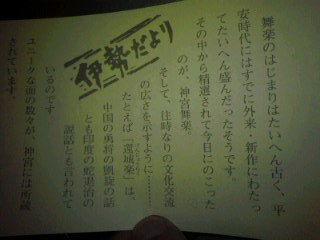 舞楽のはじまりはたいへん古く、平
安時代にはすでに外来・新作にわたっ
てたいへん盛んだったそうです。
その中から精選されて今日にのこった
のが、神宮舞楽。
そして、往時なりの文化交流
の広さを示すように………
たとえば『還城楽』は、
中国の勇将の凱旋の話
とも印度の蛇退治の
説話とも言われて
いるのです
ユニークな面の数々が、神宮には所蔵
されています。
伊勢だより